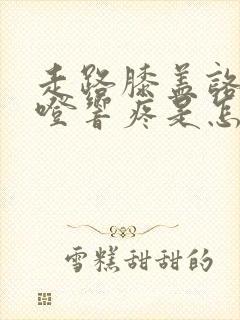 走路膝盖咯
噔响疼是怎
雪糕甜甜的